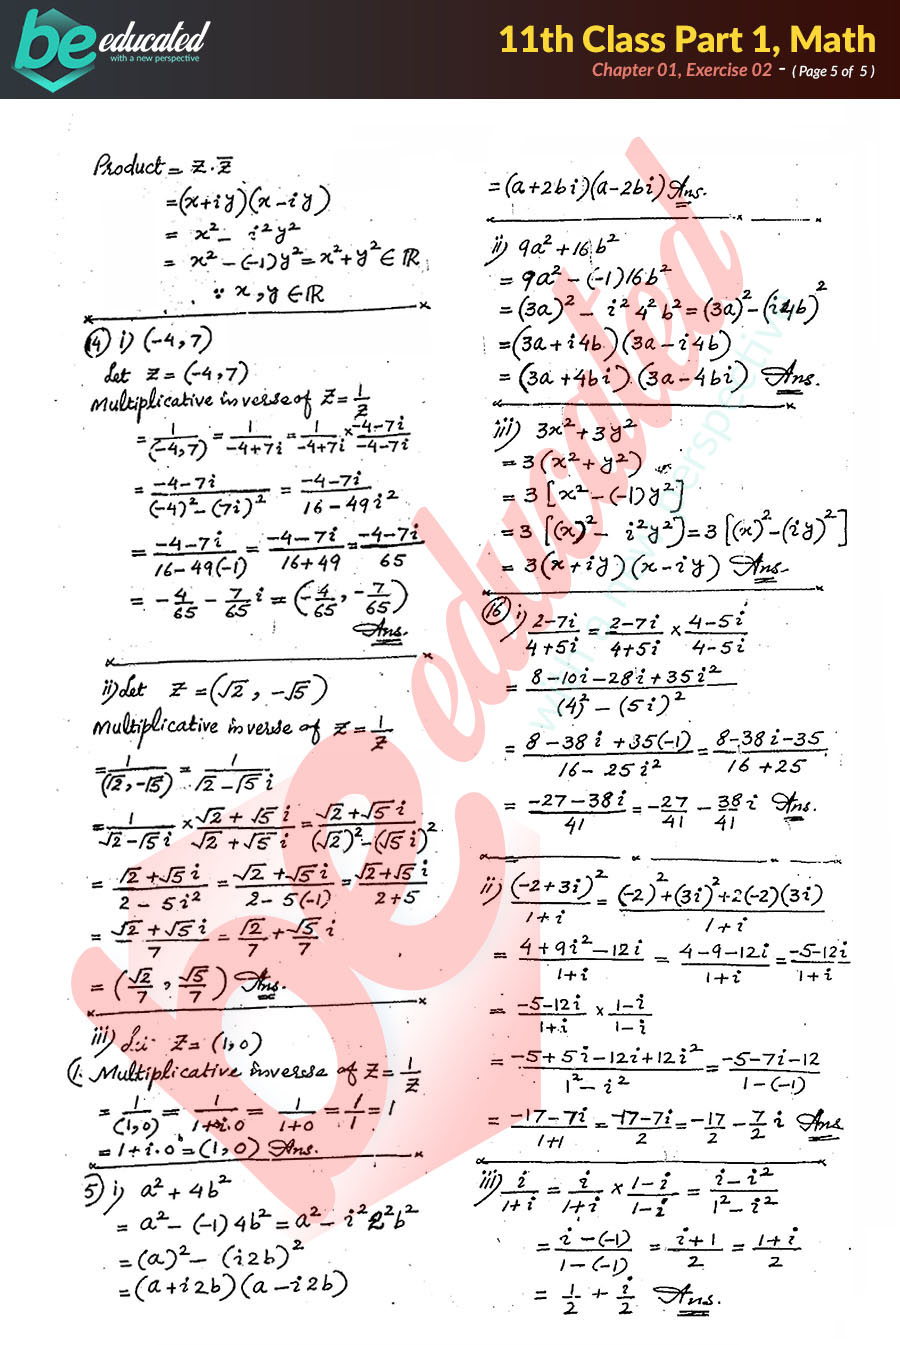 be educated
with a new perspective
11th Class Part 1, Math
Chapter 01, Exercise 02 - ( Page 5 of 5 )
Product = z.z̅
=(x+iy)(x-iy)
= x² - i²y²
= x² - (-1)y² = x²+y² ∈ ℝ
∵ x,y ∈ ℝ
(4) i) (-4,7)
Let z = (-4,7)
Multiplicative inverse of z = 1/z
= 1/(-4,7) = 1/-4+7i = 1/-4+7i × -4-7i/-4-7i
= -4-7i/(-4)²-(7i)² = -4-7i/16-49i²
= -4-7i/16-49(-1) = -4-7i/16+49 = -4-7i/65
= -4/65 - 7/65 i = (-4/65, -7/65)
Ans.
ii) Let z = (√2, -√5)
Multiplicative inverse of z = 1/z
= 1/(√2,-√5) = 1/√2-√5i
= 1/√2-√5i × √2+√5i/√2+√5i = √2+√5i/(√2)²-(√5i)²
= √2+√5i/2-5i² = √2+√5i/2-5(-1) = √2+√5i/2+5
= √2+√5i/7 = √2/7 + √5/7 i
= (√2/7, √5/7) Ans.
iii) Let z = (1,0)
Multiplicative inverse of z = 1/z
= 1/(1,0) = 1/1+i.0 = 1/1+0 = 1/1 = 1
= 1+i.0 = (1,0) Ans.
5) i) a²+4b²
= a²-(-1)4b² = a²-i²2²b²
= (a)² - (i2b)²
= (a+i2b)(a-i2b)
= (a+2bi)(a-2bi) Ans.
ii) 9a²+16b²
= 9a²-(-1)16b²
= (3a)² - i²4²b² = (3a)² - (i4b)²
= (3a+i4b)(3a-i4b)
= (3a+4bi).(3a-4bi) Ans.
iii) 3x²+3y²
= 3(x²+y²)
= 3[x²-(-1)y²]
= 3[(x)² - i²y²] = 3[(x)²-(iy)²]
= 3(x+iy)(x-iy) Ans.
(16) i) 2-7i/4+5i = 2-7i/4+5i × 4-5i/4-5i
= 8-10i-28i+35i²/(4)²-(5i)²
= 8-38i+35(-1)/16-25i² = 8-38i-35/16+25
= -27-38i/41 = -27/41 - 38/41 i Ans.
ii) (-2+3i)²/1+i = (-2)²+(3i)²+2(-2)(3i)/1+i
= 4+9i²-12i/1+i = 4-9-12i/1+i = -5-12i/1+i
= -5-12i/1+i × 1-i/1-i
= -5+5i-12i+12i²/1²-i² = -5-7i-12/1-(-1)
= -17-7i/1+1 = -17-7i/2 = -17/2 - 7/2 i Ans
iii) i/1+i = i/1+i × 1-i/1-i = i-i²/1²-i²
= i-(-1)/1-(-1) = i+1/2 = 1+i/2
= 1/2 + i/2 Ans.
be educated
with a new perspective